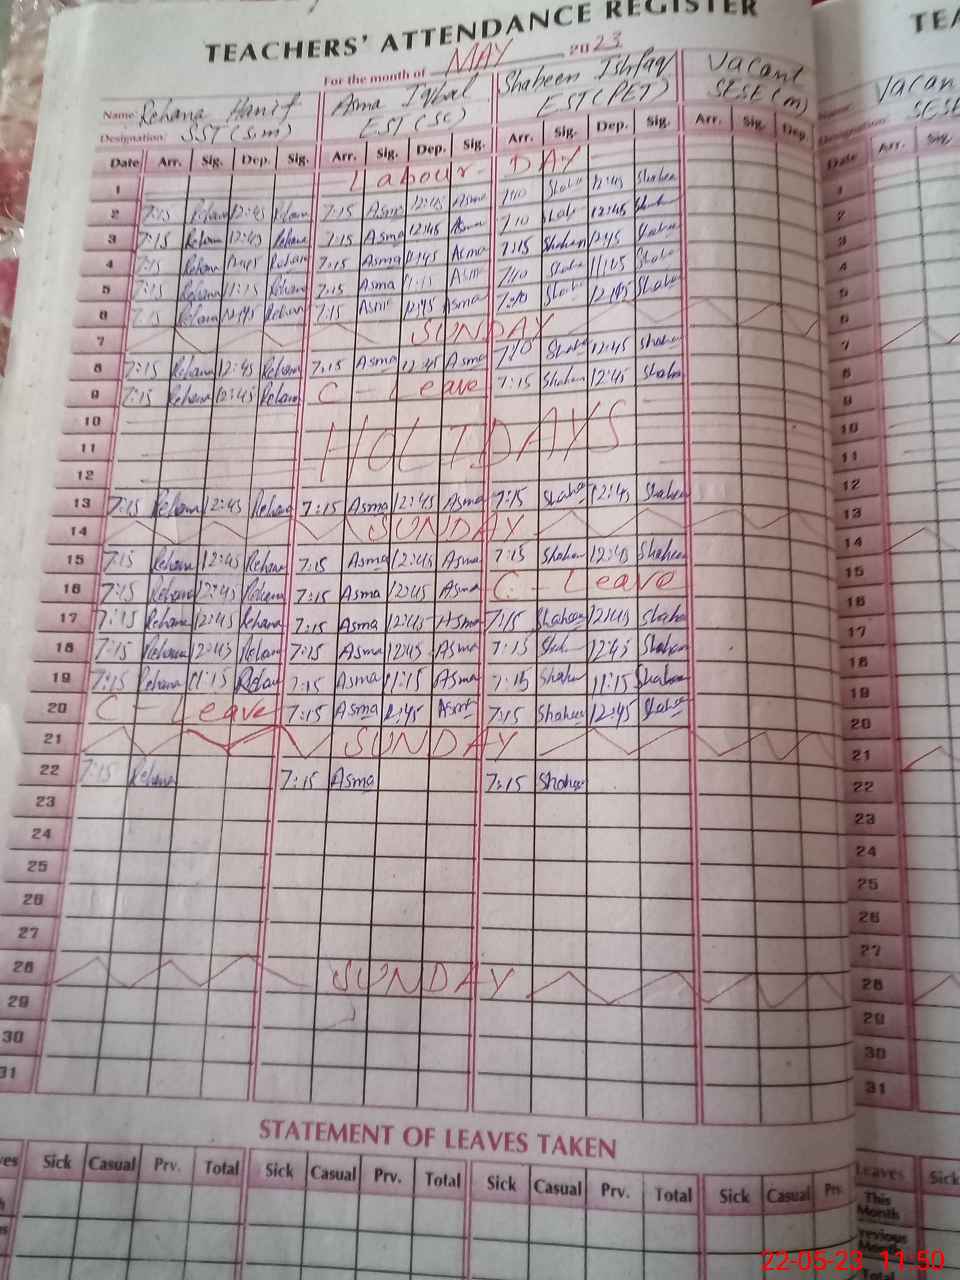 TEACHERS' ATTENDANCE REGISTER
TEA
For the month of MAY 2023
Name: Rehana Hanif Asma Iqbal Shaheen Ishfaq Vacant
Vacan
Designation: SST (S.m) EST (SC) EST (PET) SESE (m)
SESE
Date Arr. Sig. Dep. Sig. Arr. Sig. Dep. Sig. Arr. Sig. Dep. Sig. Arr. Sig. Dep. Date Arr. Sig.
1 Labour DAY 1
2 7:15 Rehana 12:45 Rehana 7:15 Asma 12:45 Asma 7:10 12:45 Shaheen 2
3 7:15 Rehana 12:45 Rehana 7:15 Asma 12:45 Asma 7:10 12:45 3
4 7:15 Rehana 12:45 Rehana 7:15 Asma 12:45 Asma 7:15 Shaheen 12:45 Shaheen 4
5 7:15 Rehana 11:15 Rehana 7:15 Asma 11:15 Asma 7:10 5
6 7:15 Rehana 12:45 Rehana 7:15 Asma 12:45 Asma 12:45 6
7 SUNDAY 7
8 7:15 Rehana 12:45 Rehana 7:15 Asma 12:45 Asma 7:10 12:45 Shaheen 8
9 7:15 Rehana 12:45 Rehana C - Leave 7:15 Shaheen 12:45 Shaheen 9
10 10
11 HOLIDAYS 11
12 12
13 7:15 Rehana 12:45 Rehana 7:15 Asma 12:45 Asma 7:15 Shaheen 12:45 Shaheen 13
14 SUNDAY 14
15 7:15 Rehana 12:45 Rehana 7:15 Asma 12:45 Asma 7:15 Shaheen 12:45 Shaheen 15
16 7:15 Rehana 12:45 Rehana 7:15 Asma 12:45 Asma C - Leave 16
17 7:15 Rehana 12:45 Rehana 7:15 Asma 12:45 Asma 7:15 Shaheen 12:45 Shaheen 17
18 7:15 Rehana 12:45 Rehana 7:15 Asma 12:45 Asma 7:15 12:45 Shaheen 18
19 7:15 Rehana 11:15 Rehana 7:15 Asma 11:15 Asma 7:15 Shaheen 11:15 Shaheen 19
20 C - Leave 7:15 Asma 12:45 Asma 7:15 Shaheen 12:45 Shaheen 20
21 SUNDAY 21
22 7:15 Rehana 7:15 Asma 7:15 Shaheen 22
23 23
24 24
25 25
26 26
27 27
28 SUNDAY 28
29 29
30 30
31 31
STATEMENT OF LEAVES TAKEN
Sick Casual Prv. Total Sick Casual Prv. Total Sick Casual Prv. Total Sick Casual Prv. Leaves Sick
This Month
22-05-23 11:50